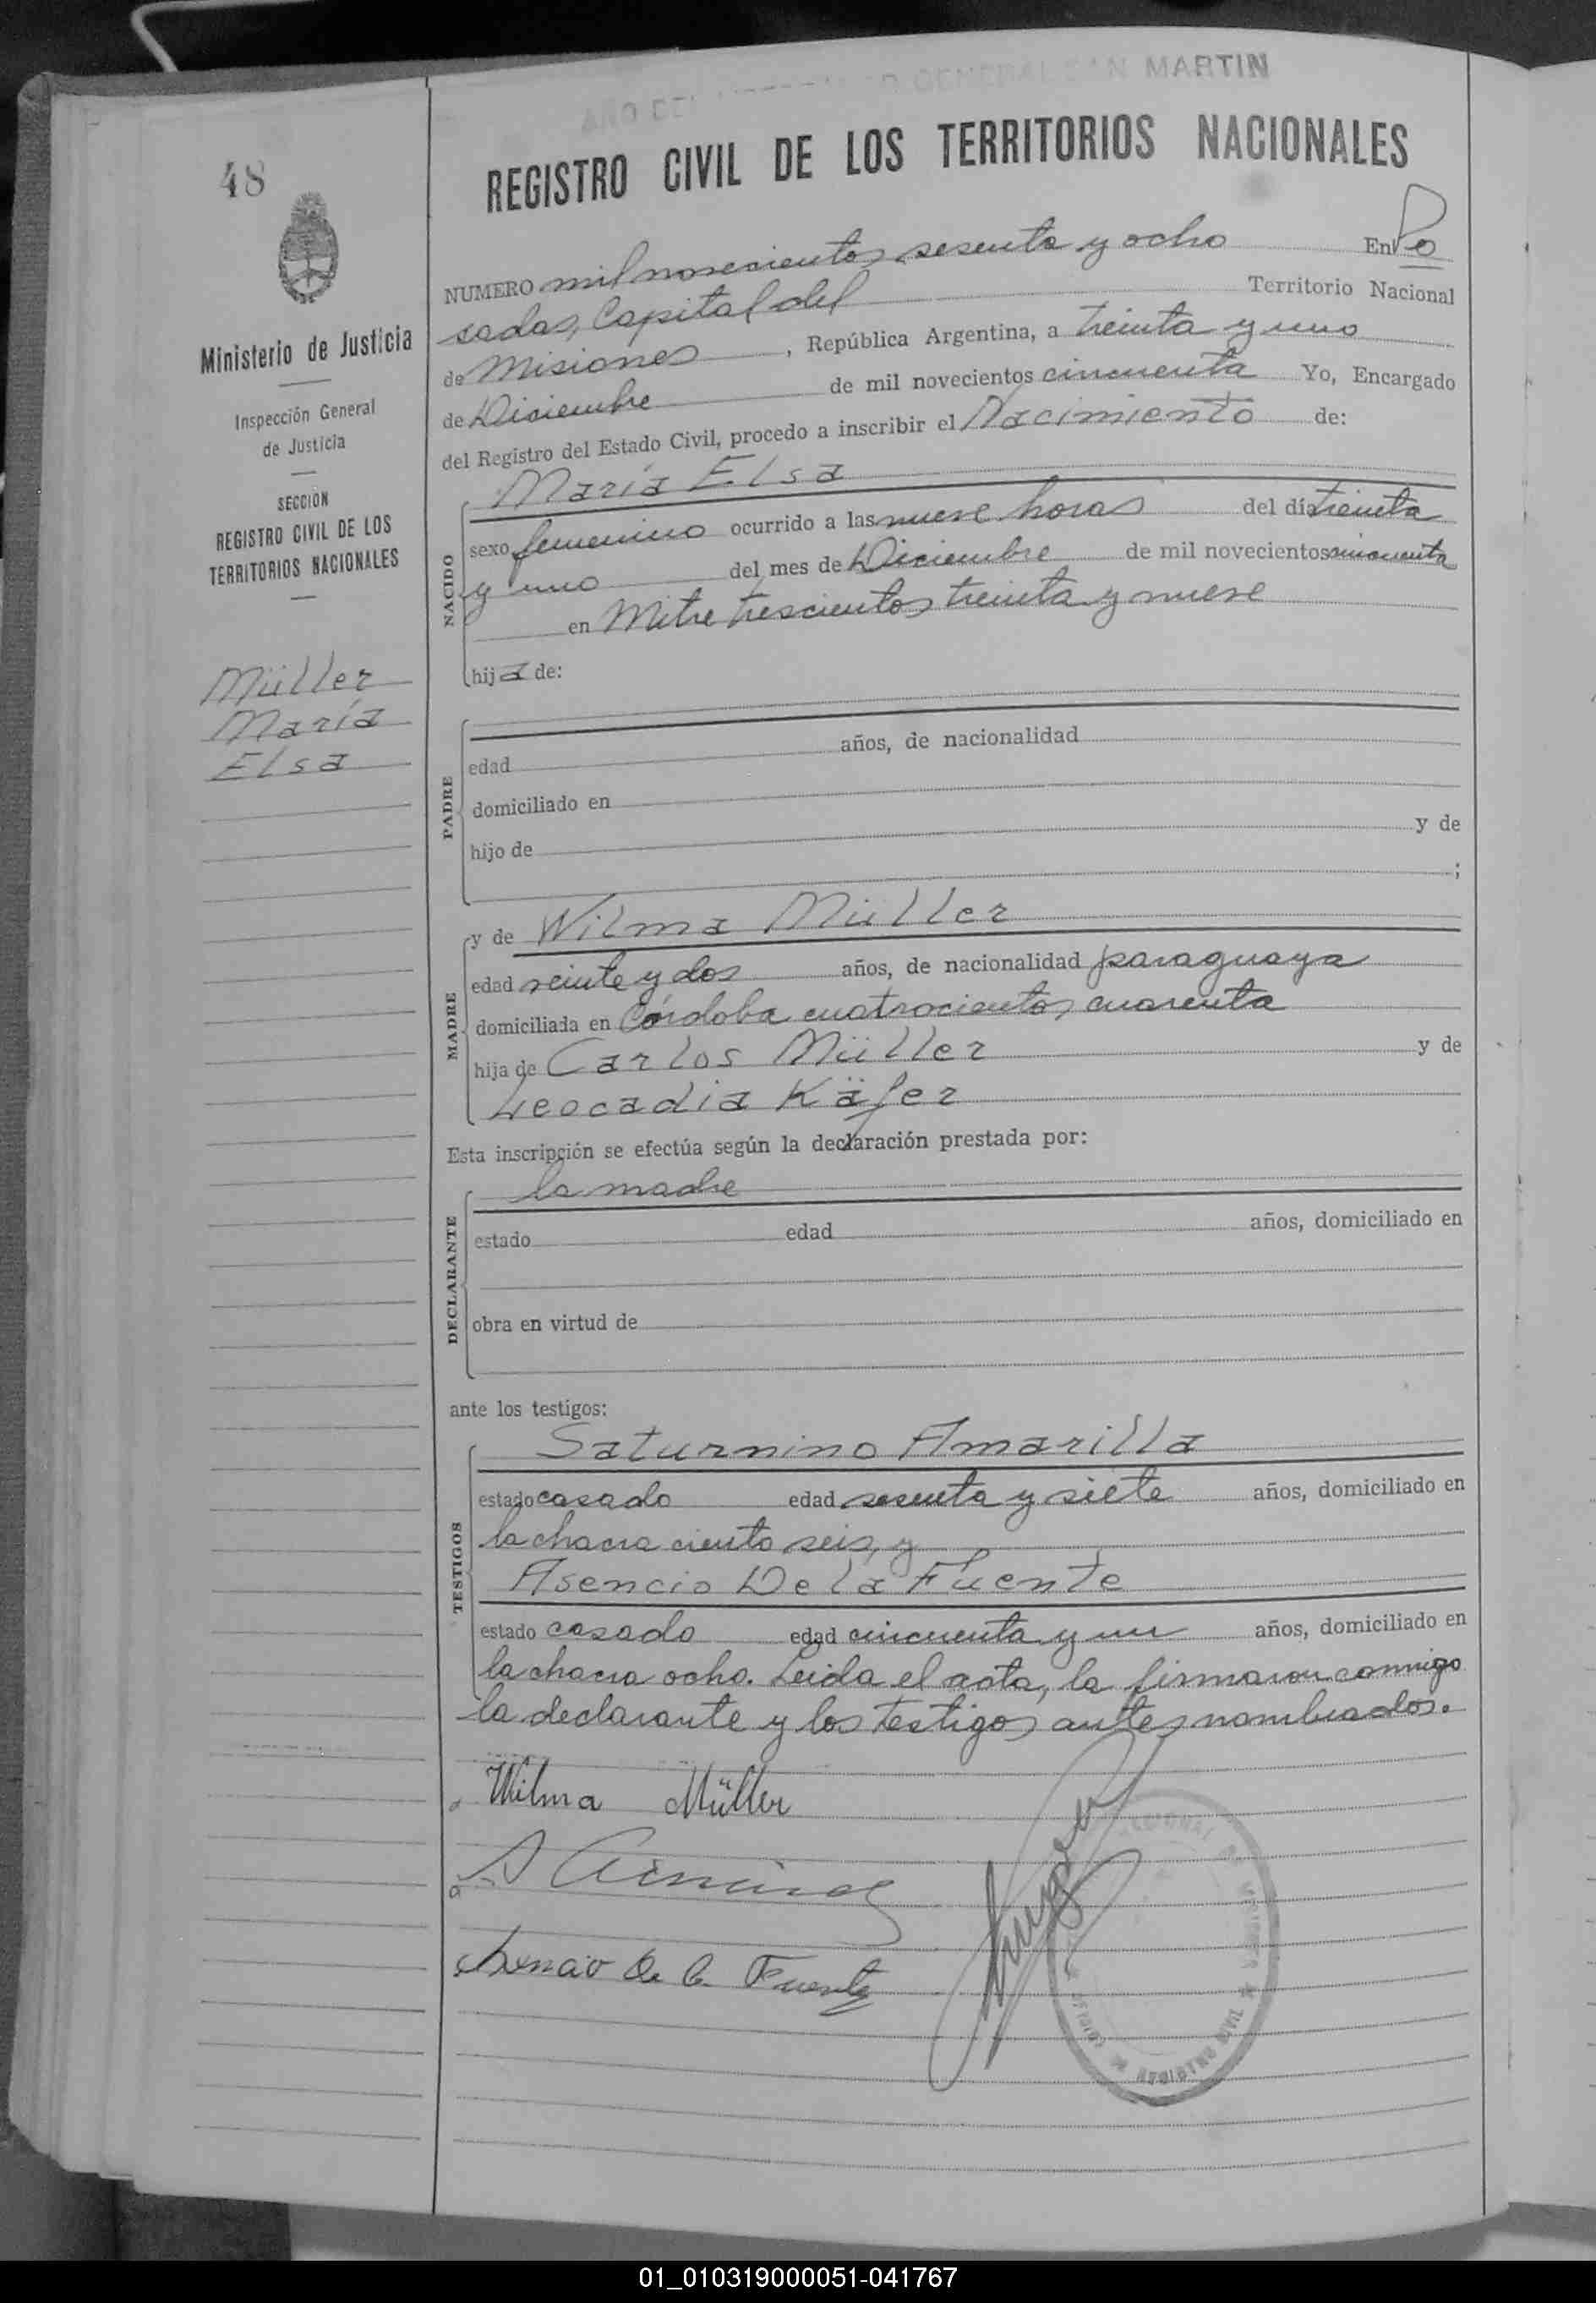 AÑO DEL GENERAL SAN MARTIN
REGISTRO CIVIL DE LOS TERRITORIOS NACIONALES
48
Ministerio de Justicia
Inspección General
de Justicia
SECCION
REGISTRO CIVIL DE LOS
TERRITORIOS NACIONALES
Müller
María
Elsa
NUMERO mil novecientos sesenta y ocho En Po
sadas, Capital del Territorio Nacional
de Misiones, República Argentina, a treinta y uno
de Diciembre de mil novecientos cincuenta Yo, Encargado
del Registro del Estado Civil, procedo a inscribir el Nacimiento de:
NACIDO
María Elsa
sexo femenino ocurrido a las nueve horas del día treinta
y uno del mes de Diciembre de mil novecientos cincuenta
en Mitre trescientos treinta y nueve
hija de:
PADRE
edad años, de nacionalidad
domiciliado en
hijo de y de
;
MADRE
y de Wilma Müller
edad veinte y dos años, de nacionalidad paraguaya
domiciliada en Córdoba cuatrocientos cuarenta
hija de Carlos Müller y de
Leocadia Käfer
Esta inscripción se efectúa según la declaración prestada por:
DECLARANTE
la madre
estado edad años, domiciliado en
obra en virtud de
ante los testigos:
TESTIGOS
Saturnino Amarilla
estado casado edad sesenta y siete años, domiciliado en
la chacra ciento seis, y
Asencio De la Fuente
estado casado edad cincuenta y un años, domiciliado en
la chacra ocho. Leida el acta, la firmaron conmigo
la declarante y los testigos antes nombrados.
Wilma Müller
Asencio de la Fuente
REGISTRO CIVIL
01_010319000051-041767